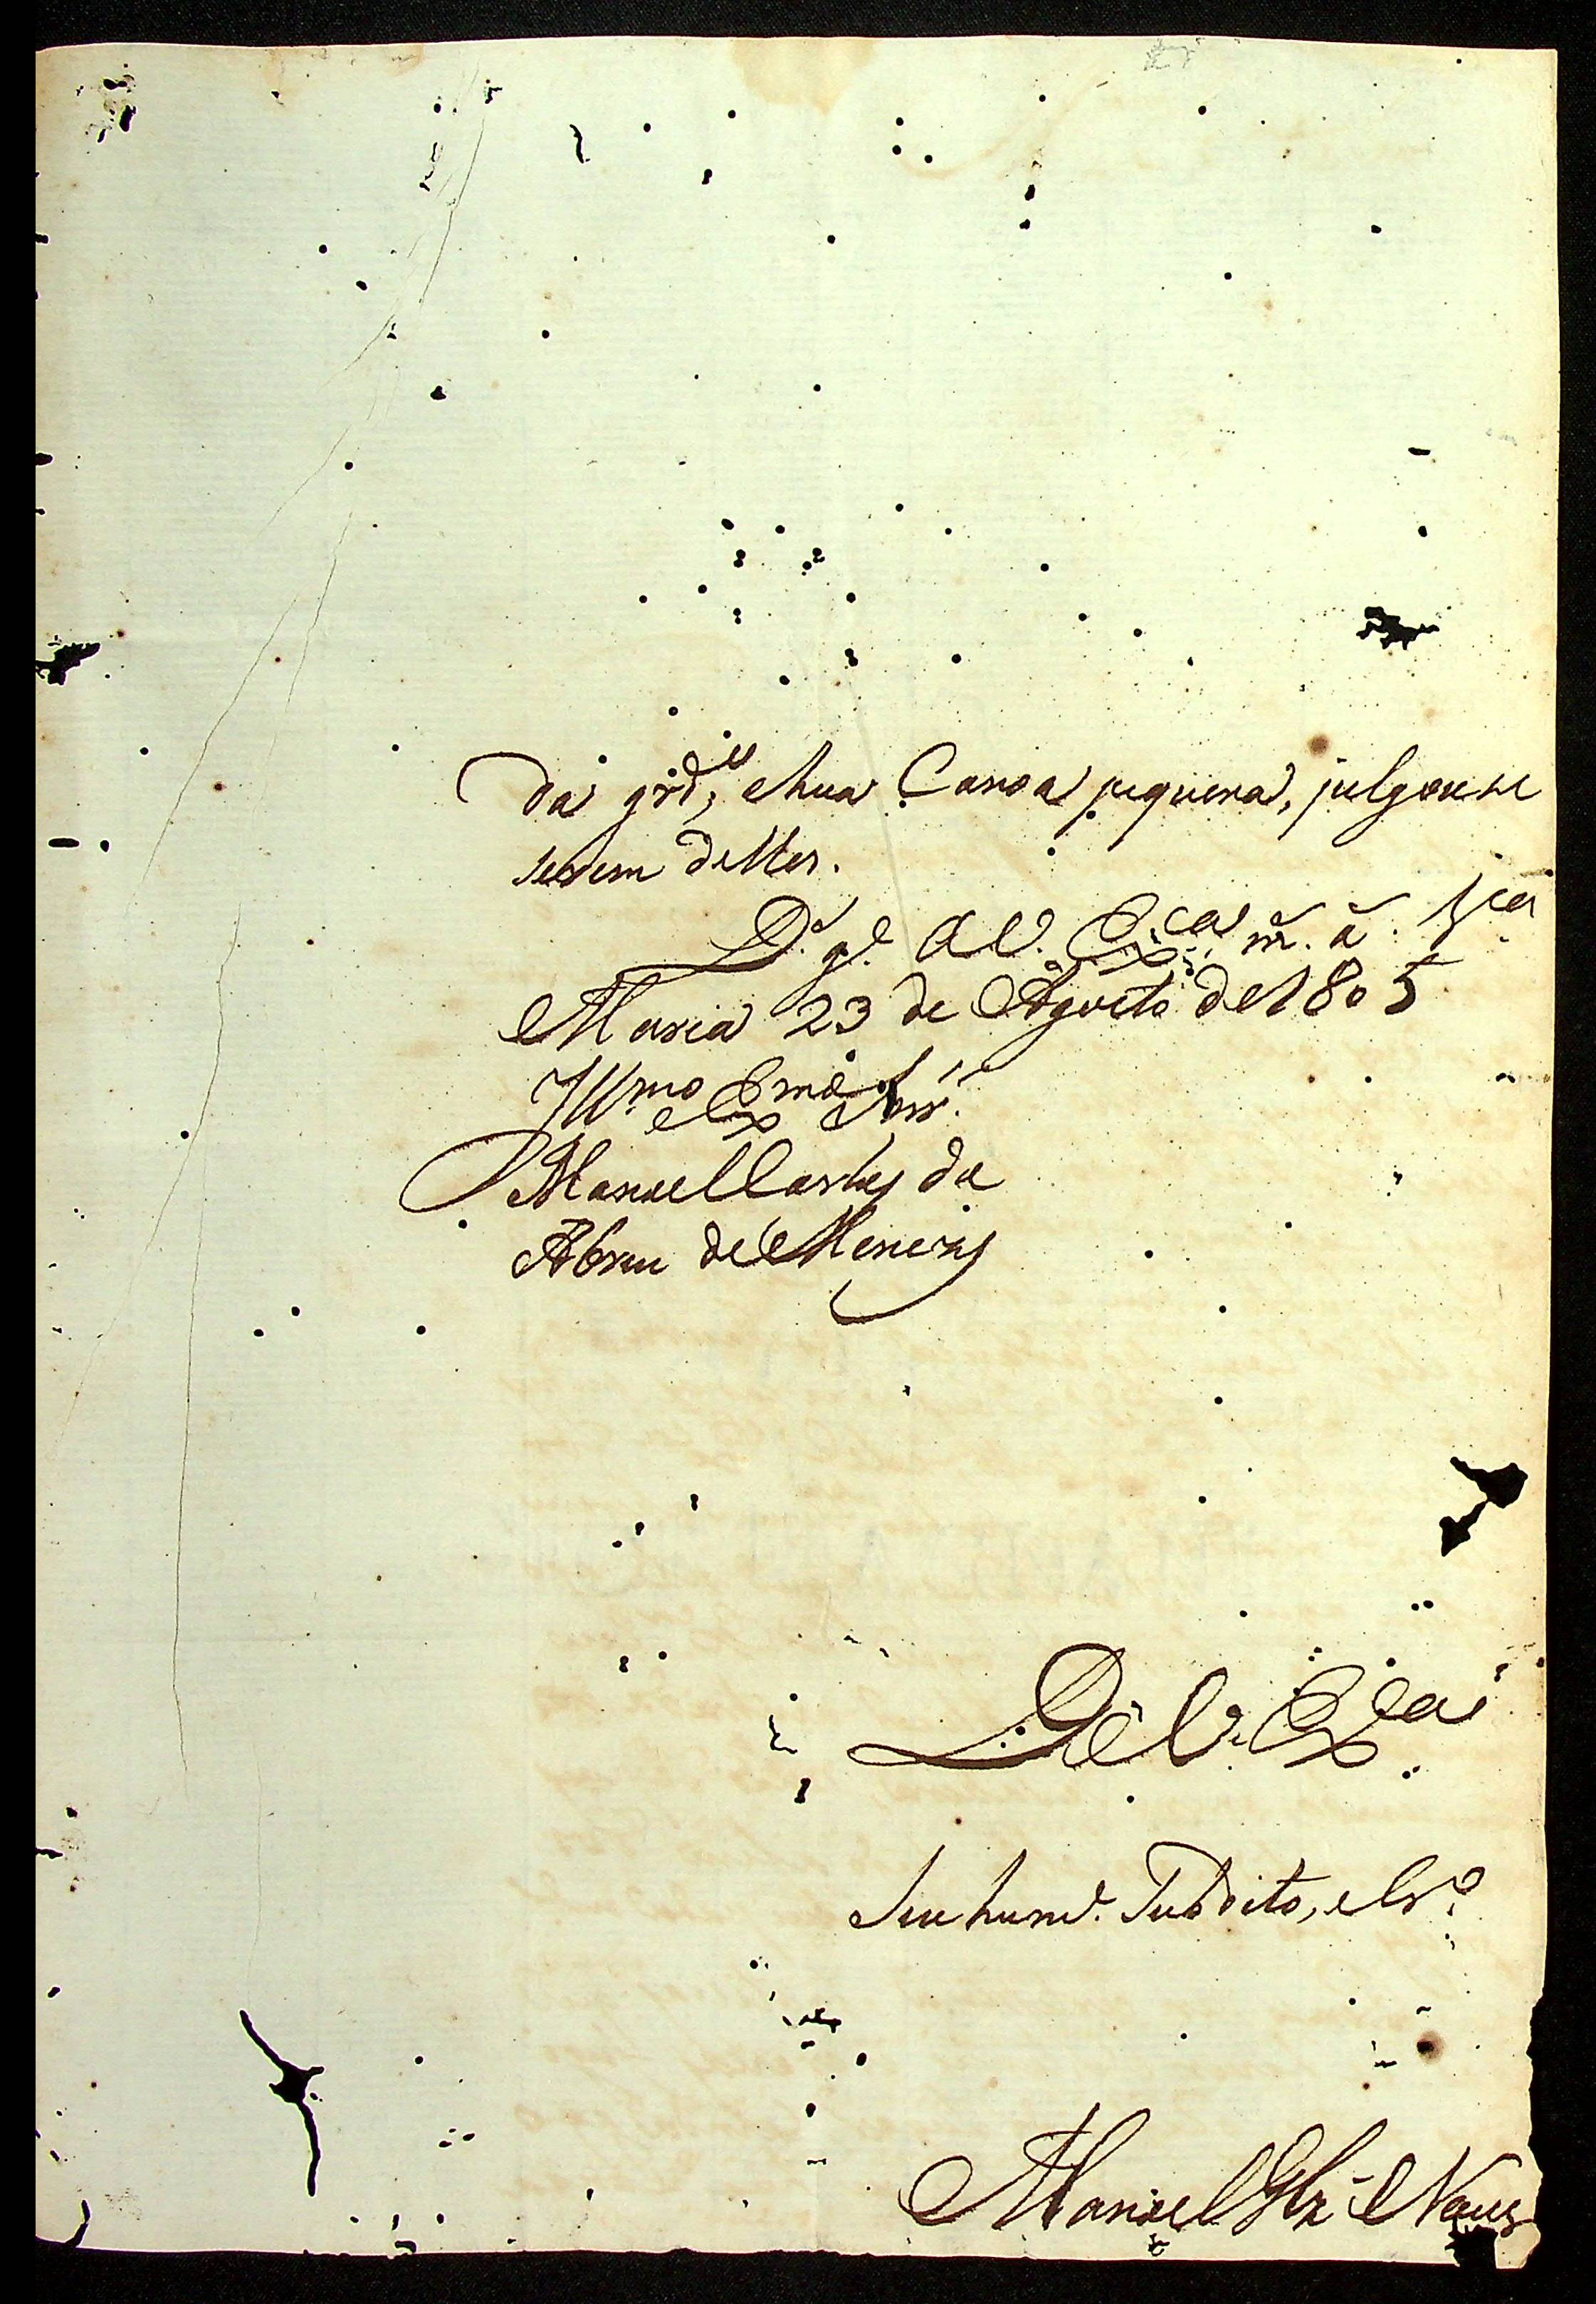 da grd.e, e hua Canoa piquena, julgouse
serem delles.
D.s g.de a V. Ex.ca m. a. S.ta
Maria 23 de Agosto de 1805
Illmo Exmo Snr.
Manoel Carlos de
Abreu de Menezes
De V. Ex.ca
Seu humd. Subdito, e Cr.o
Manoel Glz Neves